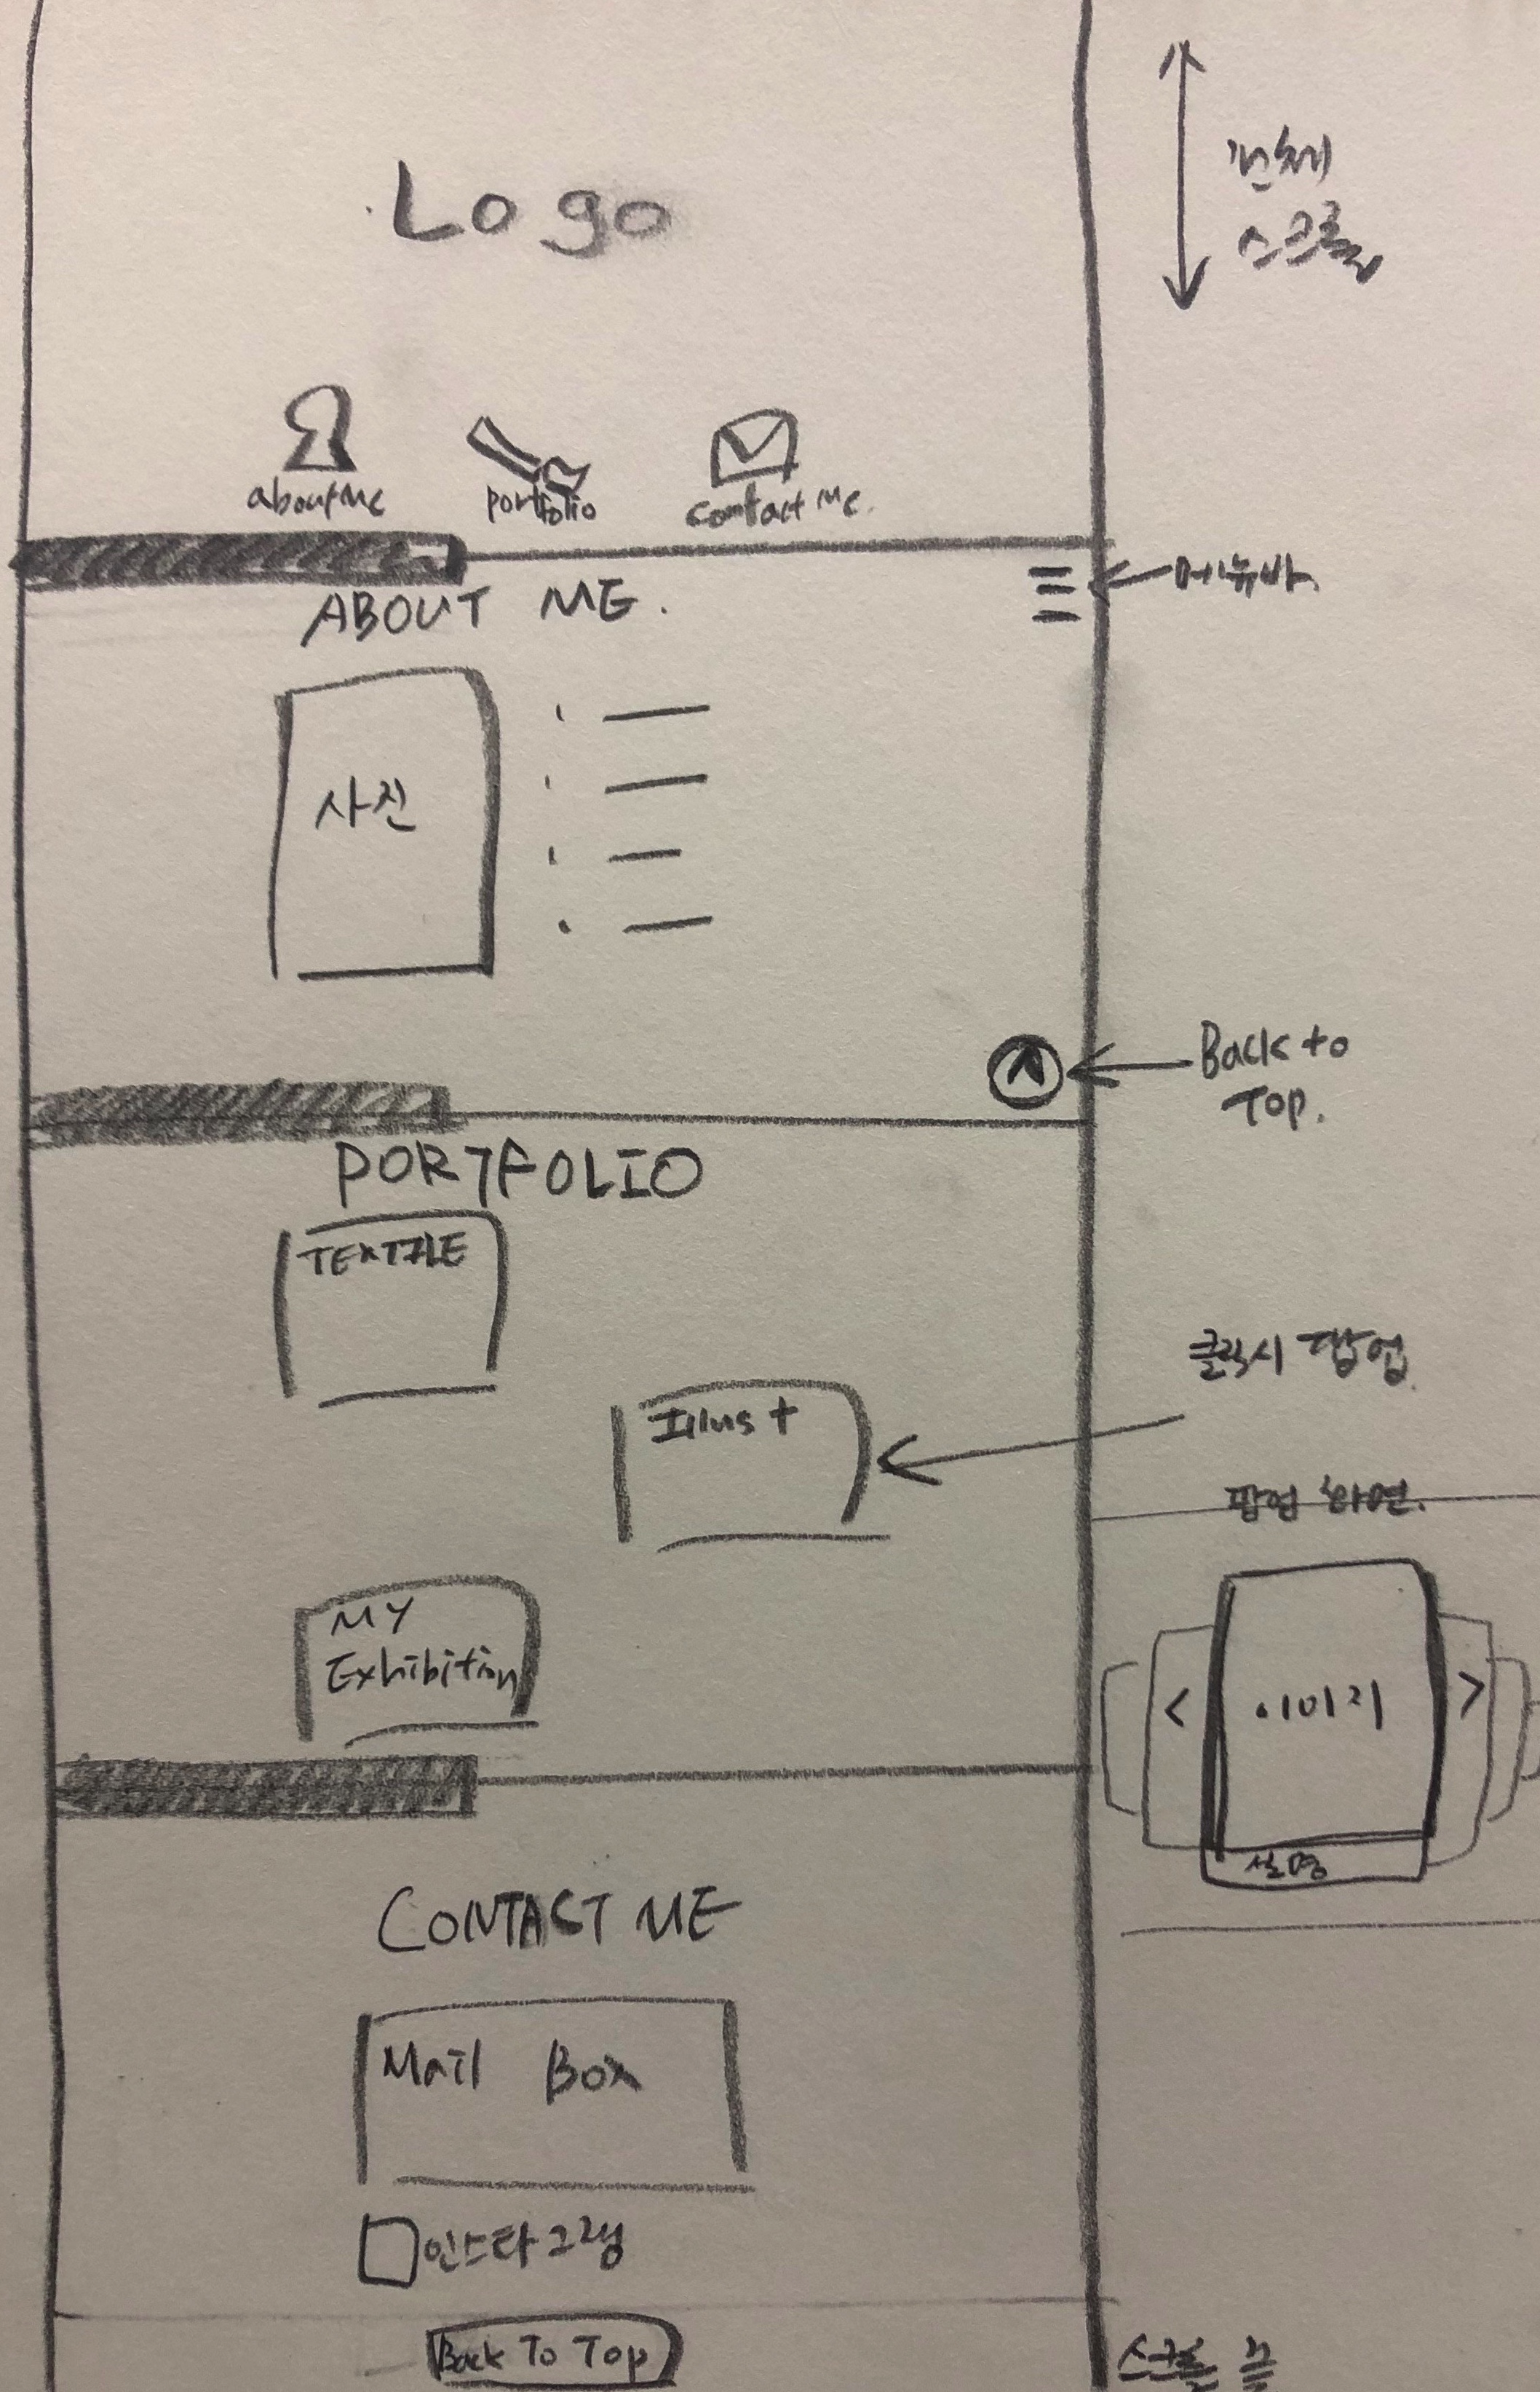 Logo
전체
스크롤
about me
portfolio
contact me.
ABOUT ME.
메뉴바.
사진
Back to
Top.
PORTFOLIO
TEXTILE
클릭시 팝업.
Illust
팝업 화면.
MY
Exhibition
<
이미지
>
설명
CONTACT ME
Mail Box
인스타그램
Back To Top
스크롤 끝